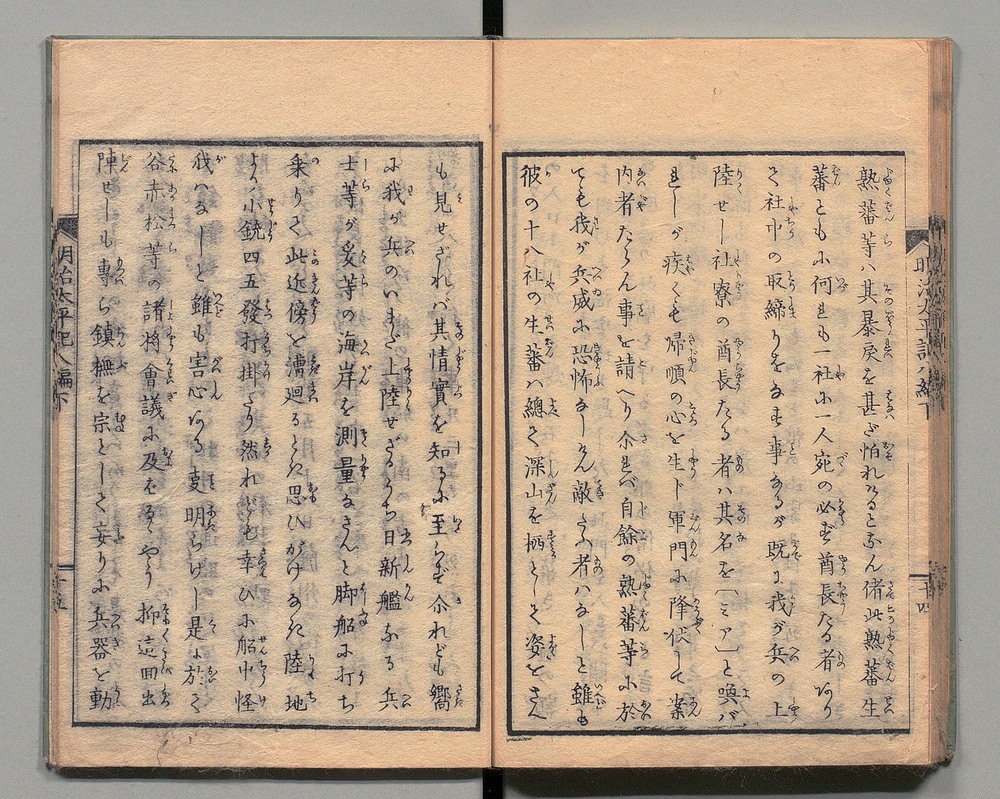 熟蕃等ハ其暴戻を甚ざ怕れけるとなん偖此熟蕃生
蕃ともに何れも一社に一人宛の必ず酋長たる者ありて
社中の取締りをなす事なるが既に我が兵の上
陸せし社寮の酋長たる者ハ其名を〔ミア〕と喚バ
れしが疾くも帰順の心を生ト軍門に降伏して案
内者たらん事を請へり尓れバ自餘の熟蕃等に於
ても我が兵威に恐怖なしけん敵たふ者ハなしと雖も
彼の十八社の生蕃ハ總て深山を栖として姿をさん
も見せざれバ其情實を知るに至らず尓れども嚮
に我が兵のいまだ上陸せざるうち日新艦なる兵
士等が妥等の海岸を測量なさんと脚船に打ち
乗りて此近傍を漕廻るとき思ひがけなき陸地
より小銃四五發打掛たり然れども幸ひに船中怪
我ハなしと雖も害心ある事明らけし是に於て
谷赤松等の諸将會議に及ぶるやう抑這回出
陣せしも専ら鎮撫を宗として妄りに兵器を動
明治太平記八編下
十四
明治太平記八編下
十五